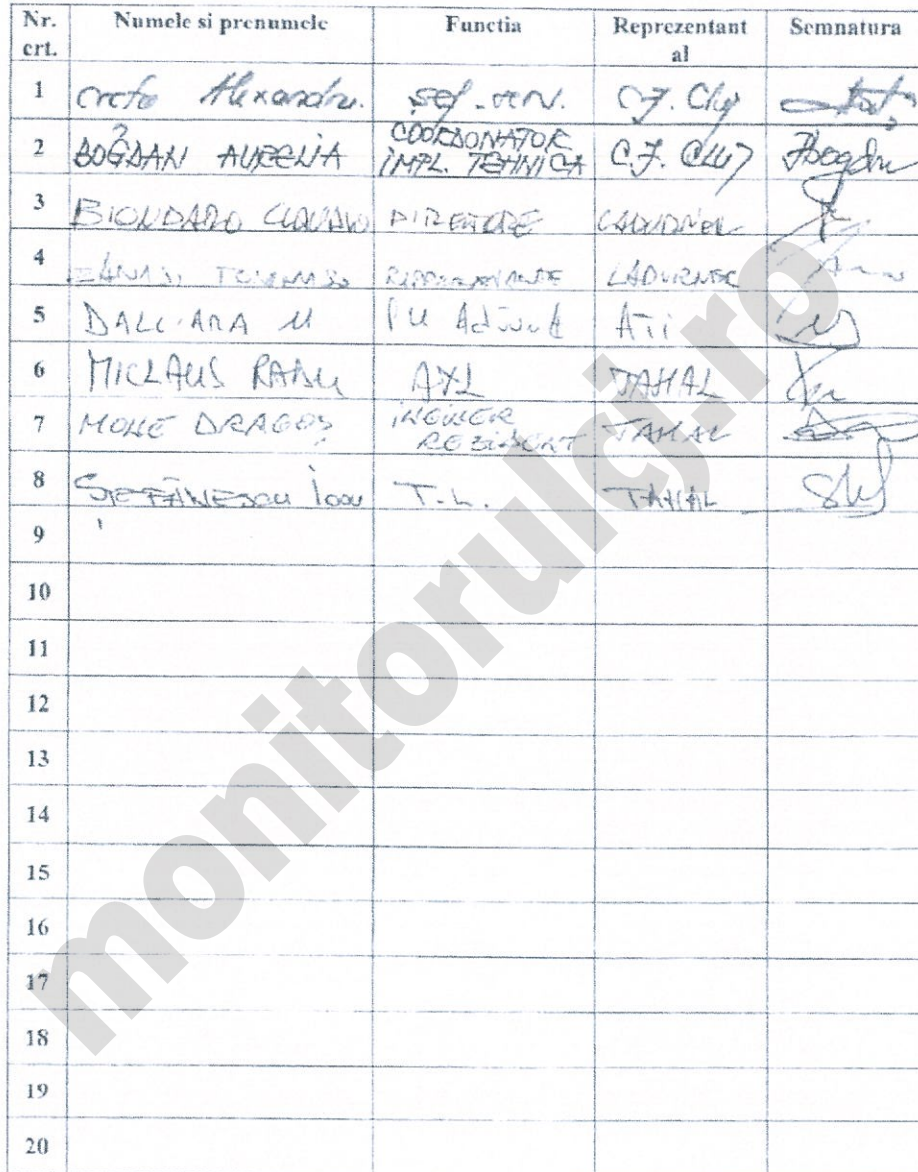 Nr. crt. Numele si prenumele Functia Reprezentant al Semnatura
1 Alexandru. șef. C.J. Cluj
2 BOGDAN AURELIA COORDONATOR IMPL. TEHNICA C.J. CLUJ Bogdan
3 BIONDARO DIRETTORE LADURNER
4 LADURNER
5 DALL'ARA M ATI
6 MICLAUS RADU AXL TAHAL
7 DRAGOȘ TAHAL
8 ȘTEFĂNESCU Ioan T.L. TAHAL
9
10
11
12
13
14
15
16
17
18
19
20
monitorulcj.ro